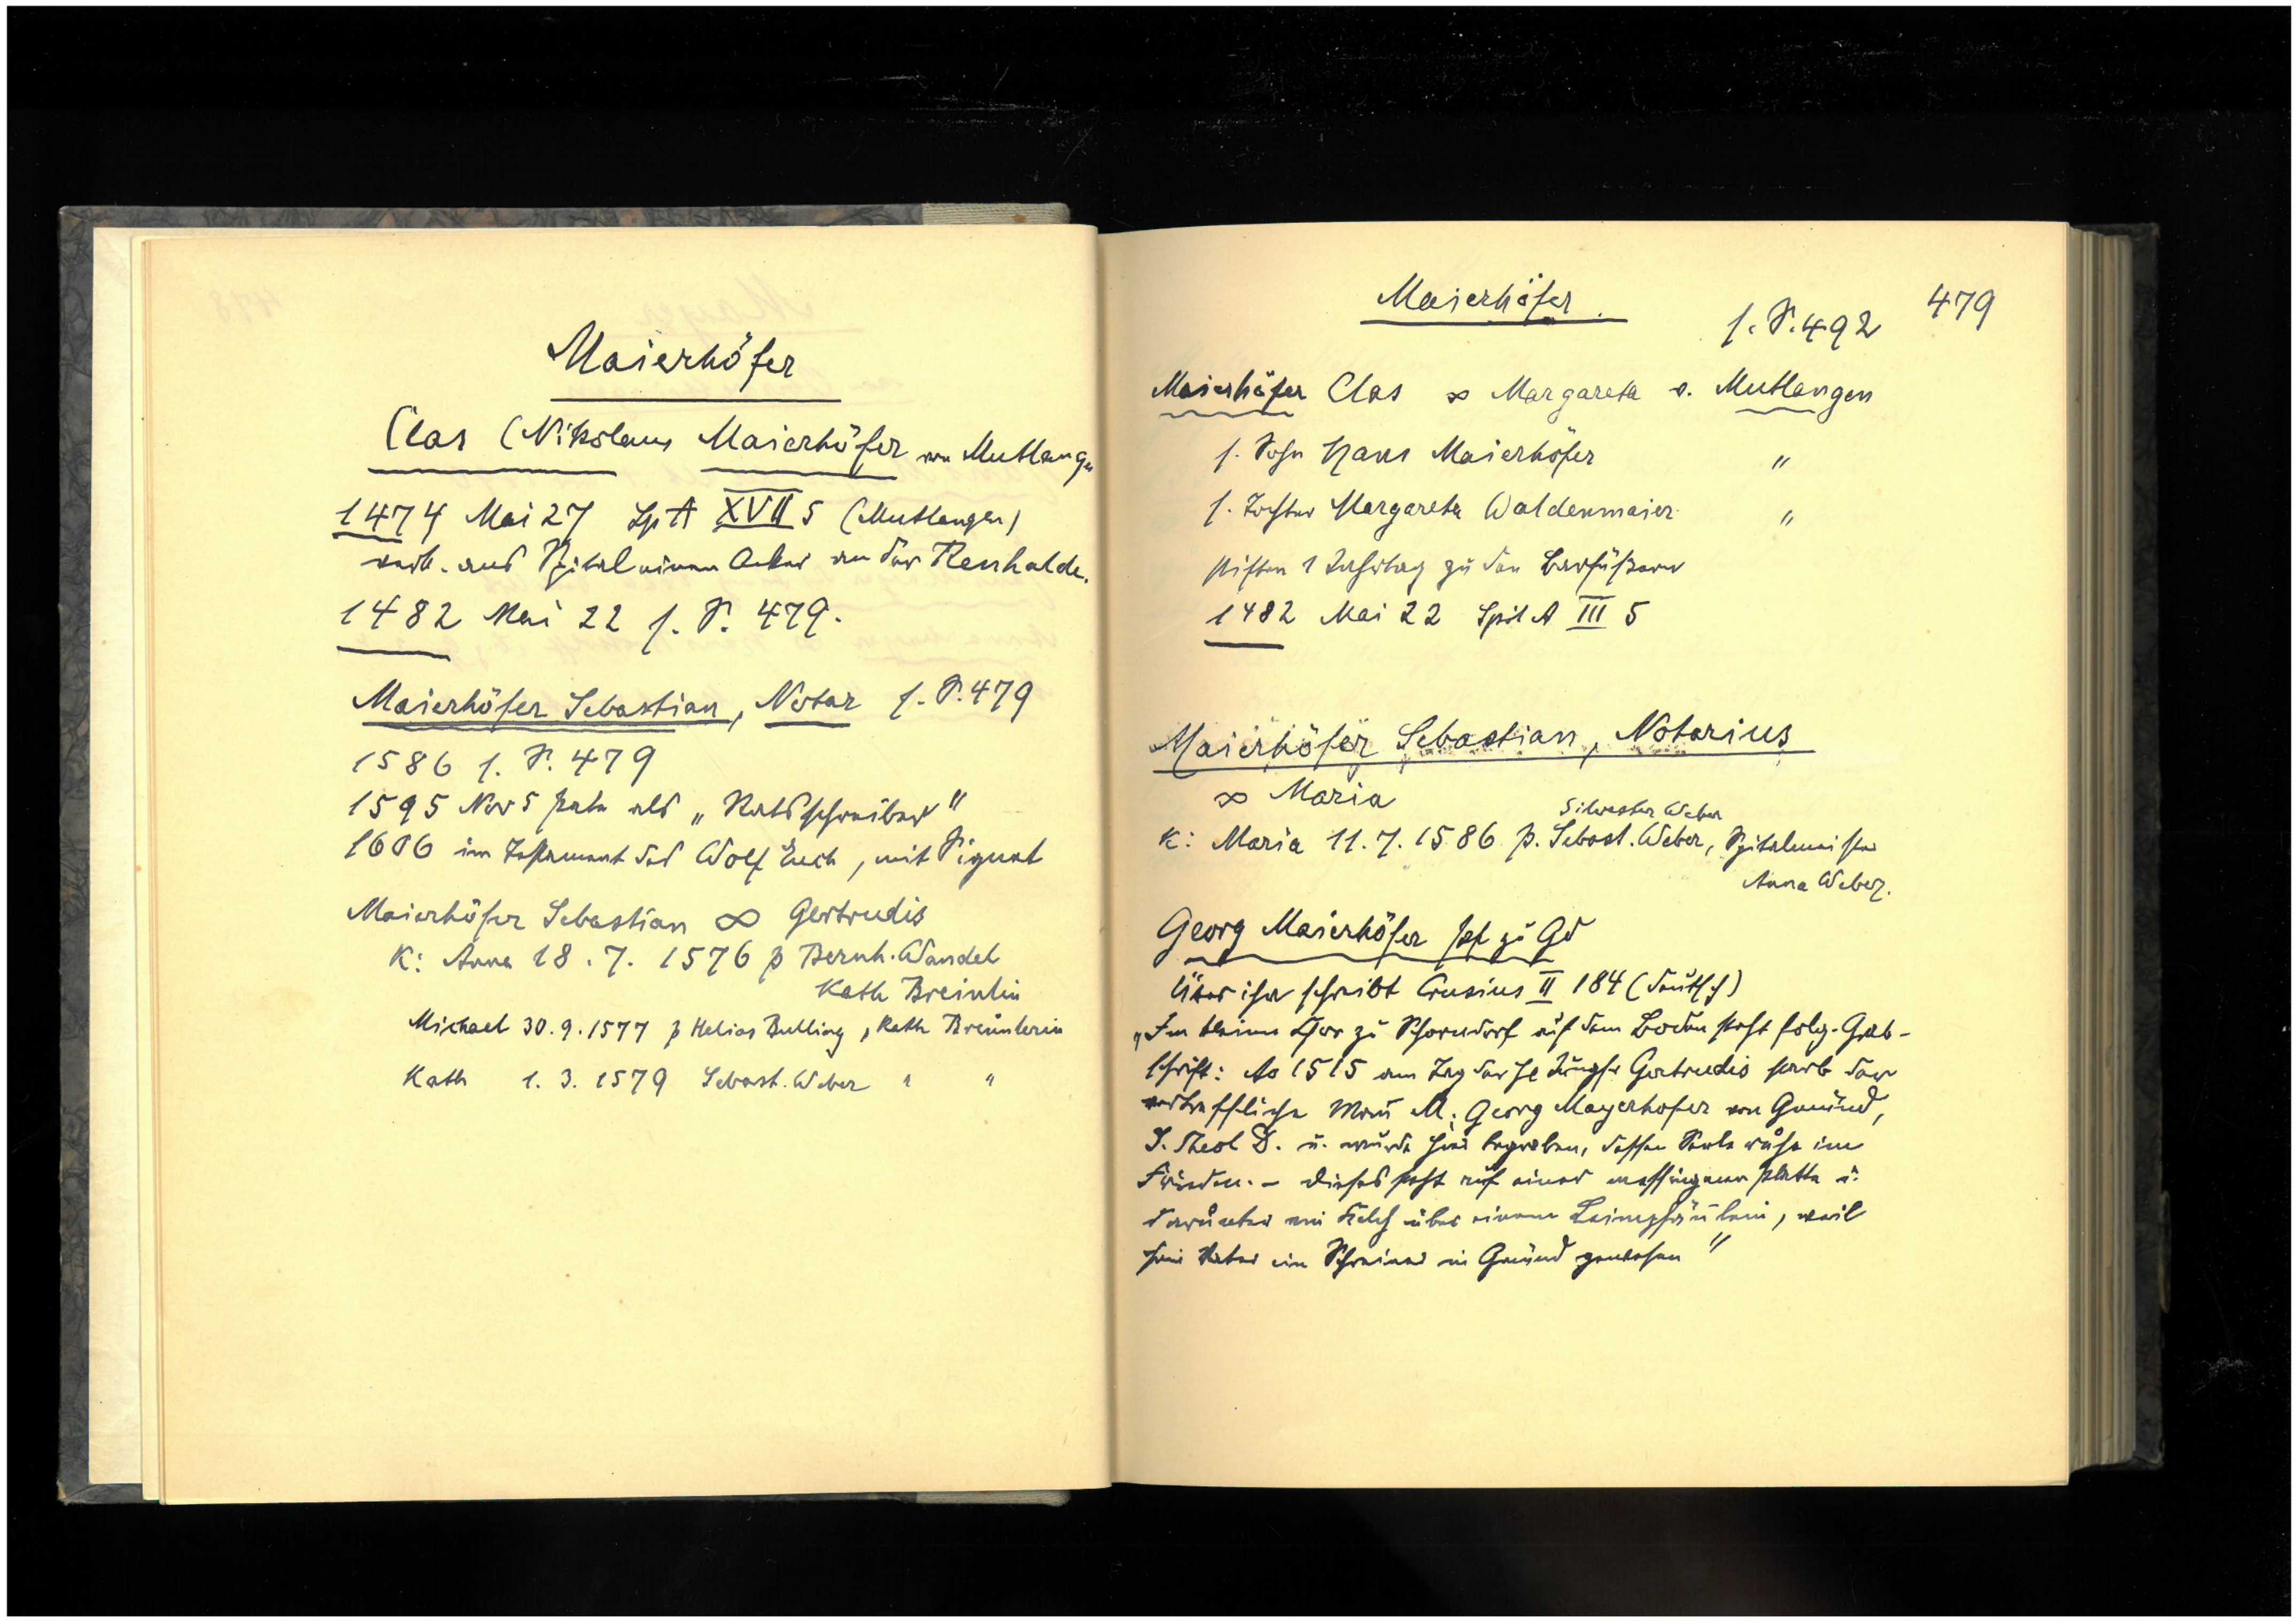 Maierhöfer
Clas (Nikolaus Maierhöfer von Mutlangen
1474 Mai 27 Sp A XVII 5 (Mutlangen)
verk. ans Spital einen Acker an der Renhalde.
1482 Mai 22 s. S. 479.
Maierhöfer Sebastian, Notar s. S. 479
1586 s. S. 479
1595 Nov 5 Pate als „Ratsschreiber"
1606 im Testament des Wolf Euch, mit Signet
Maierhöfer Sebastian ∞ Gertrudis
K: Anna 18. 7. 1576 p Bernh. Wandel
Kath Breinlin
Michael 30. 9. 1577 p Helias Bulling, Kath Breunlerin
Kath 1. 3. 1579 Sebast. Weber " "
Maierhöfer.
479
s. S. 492
Maierhöfer Clas ∞ Margareta v. Mutlangen
s. Sohn Hans Maierhöfer "
s. Tochter Margareta Waldenmaier "
stiften 1 Jahrtag zu den Barfüßern
1482 Mai 22 Spit A III 5
Maierhöfer Sebastian, Notarius
∞ Maria
Silvester Weber
K: Maria 11. 7. 1586 p. Sebast. Weber, Spitalmeister
Anna Weber.
Georg Maierhöfer zu Gd
Über ihn schreibt Crusius II 184 (deutsch)
„Im kleinen Chor zu Schorndorf auf dem Boden steht folg. Grab-
schrift: Ao 1515 am Tag der hl Jungfr Gertrudis starb der
vortreffliche Mann M. Georg Mayerhofer von Gmünd,
S. Theol D. u. wurde hier begraben, dessen Seele ruhe im
Frieden. – Dieses steht auf einer messingenen Platte u.
darunter ein Kelch über einem, weil
sein Vater ein Schreiner in Gmünd gewesen"